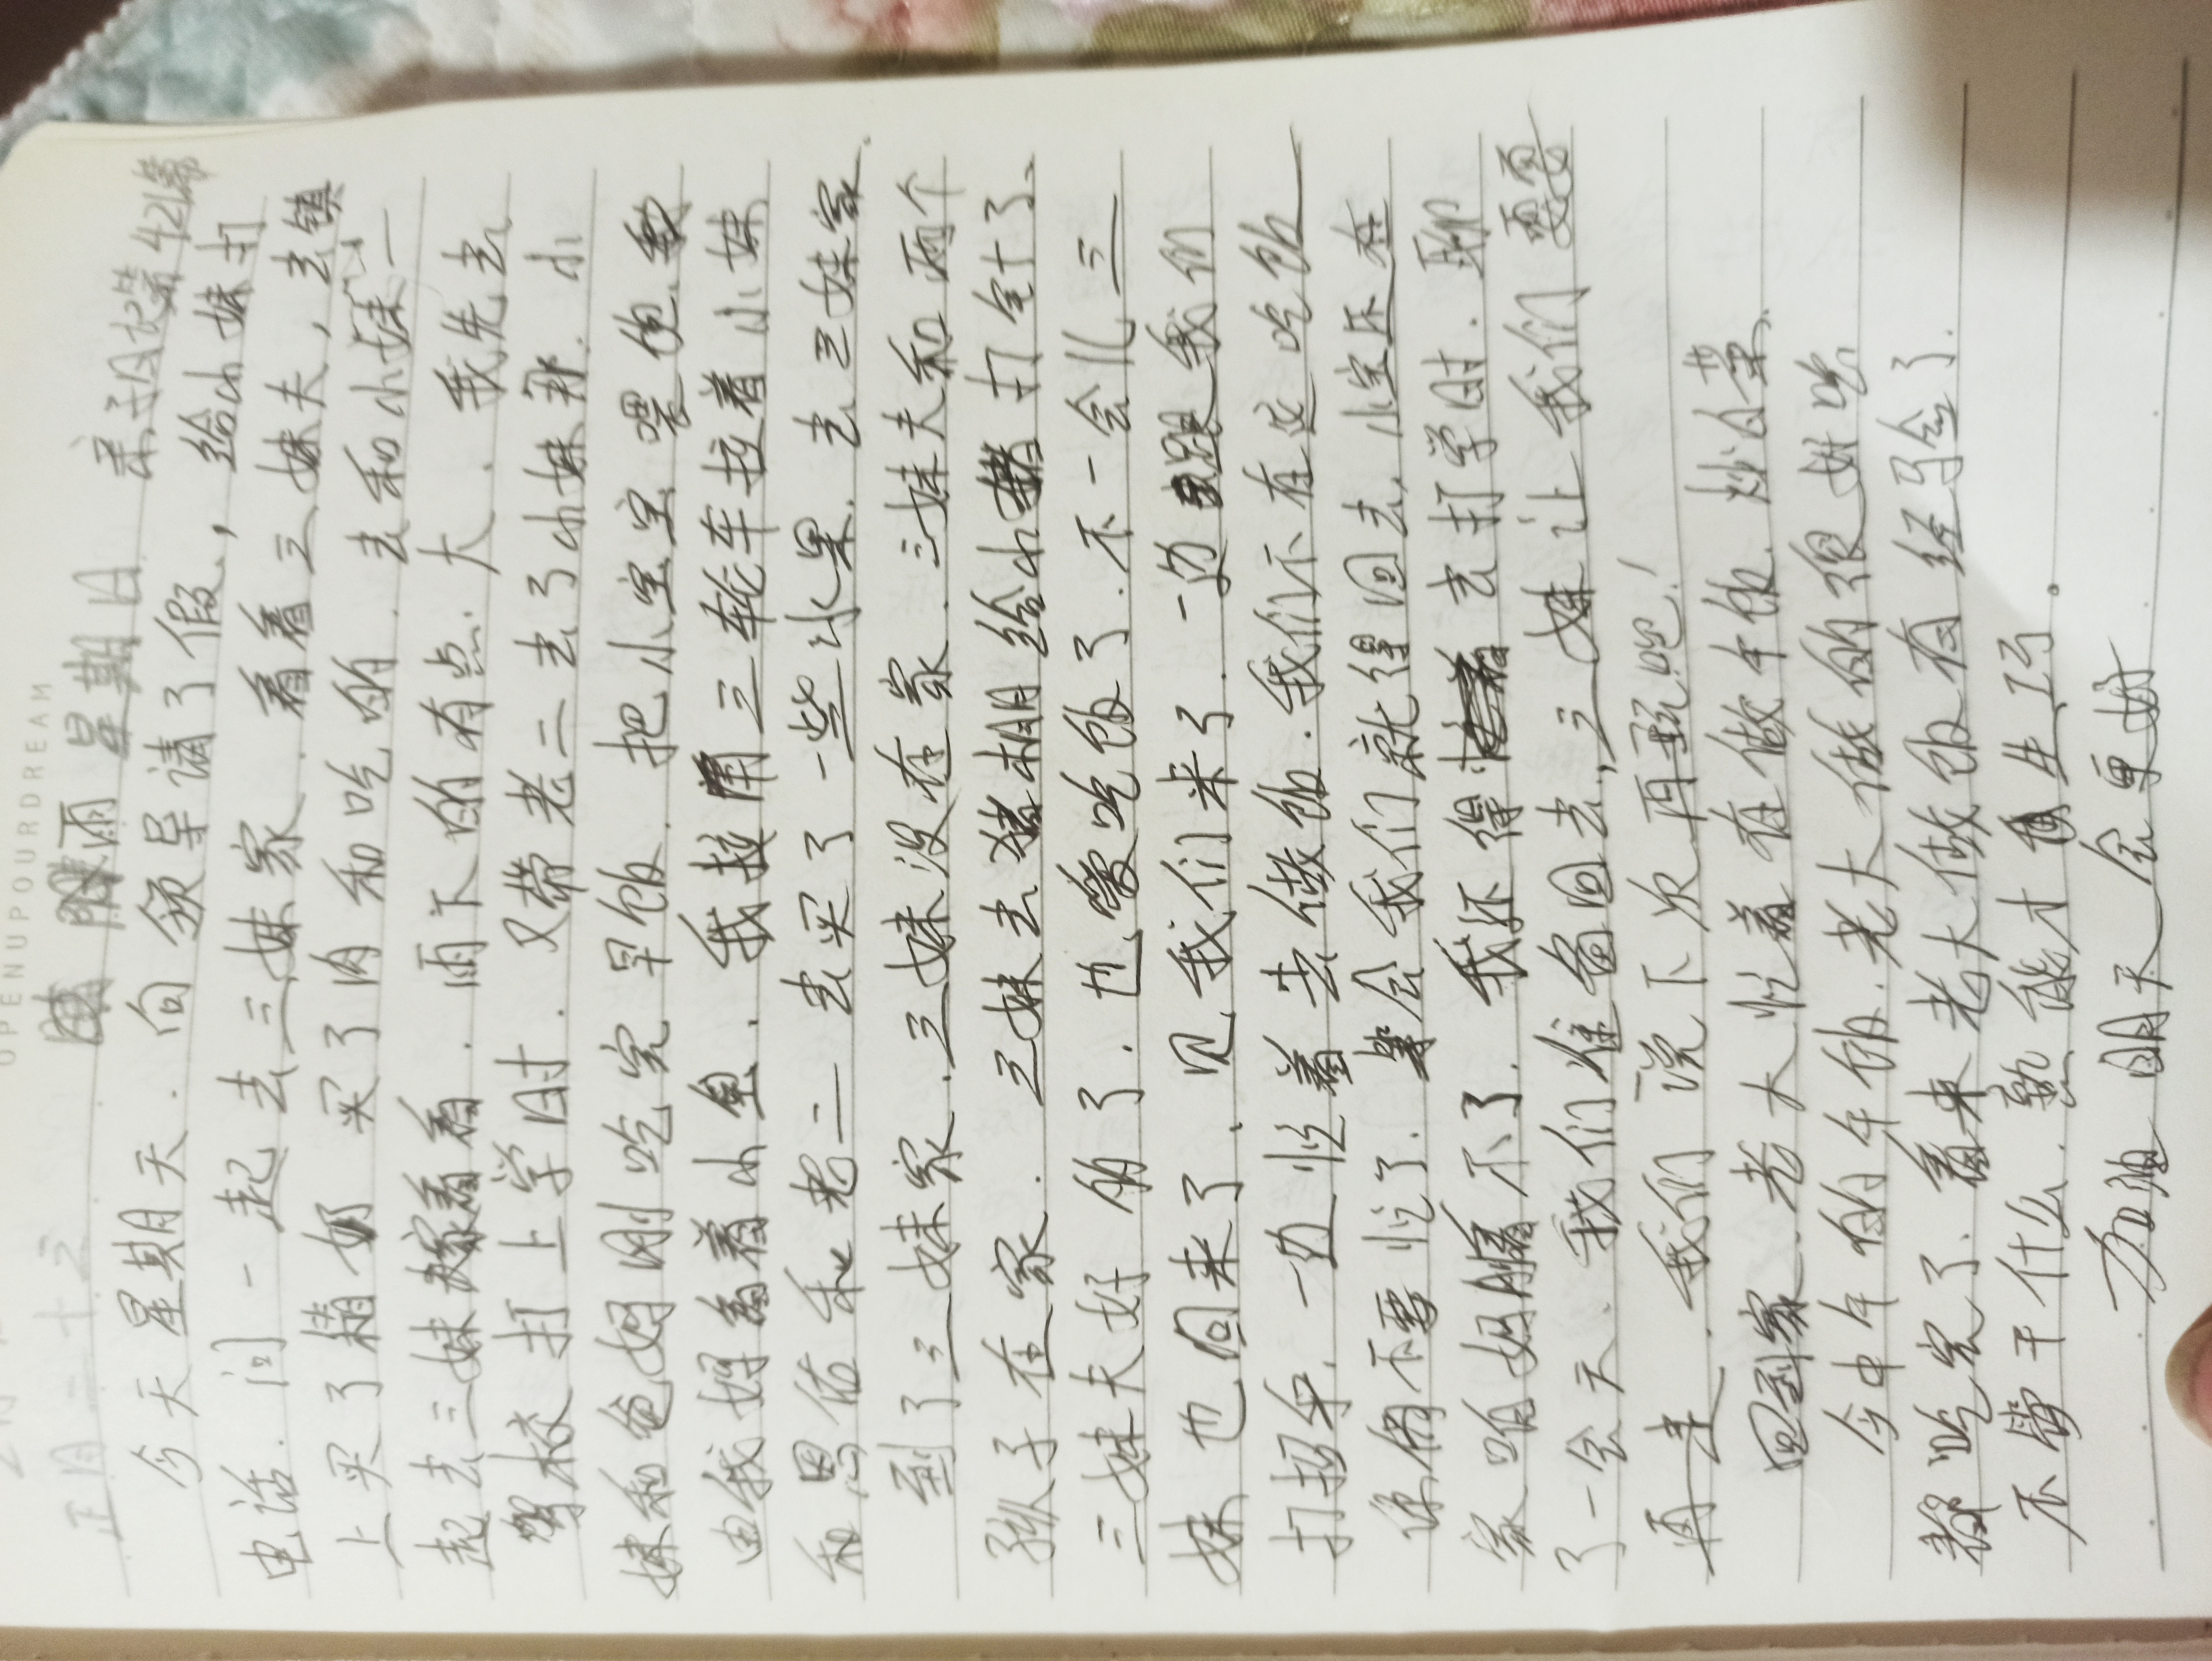 OPENUPOURDREAM
正月二十三 雨 星期日 亲子日记第421篇
今天星期天. 向领导请了假, 给小妹打
电话. 问一起去三妹家. 看看三妹夫, 去镇
上买了箱奶 买了肉和吃的. 去和小妹一
起去三妹家看看. 雨下的有点大. 我先去
学校打上学时. 又带老二去了小妹那. 小
妹和爸妈刚吃完早饭. 把小宝宝喂饱
由我妈看着小鱼. 我用三轮车拉着小妹
和恩佑和老二去买了一些水果. 去三妹家.
到了三妹家. 三妹没在家. 三妹夫和两个
孙子在家. 三妹去猪棚给小猪打针了.
三妹夫好的了. 也能吃饭了. 不一会儿三
妹也回来了. 见我们来了. 一边跟我们
打招乎. 一边忙着去做饭. 我们不在这吃饭
你俩不要忙了. 一会我们就得回去, 小宝还在
家咱妈瞒不了. 我还得去打学时. 聊
了一会天. 我们准备回去, 三妹让我们
再来. 我们说下次再玩吧!
回到家. 老大忙着在做午饭. 炒白菜.
今中午的午饭. 老大做的很好吃
都吃完了. 看来老大做饭有经验了.
不管干什么. 熟能才生巧.
加油 明天会更好